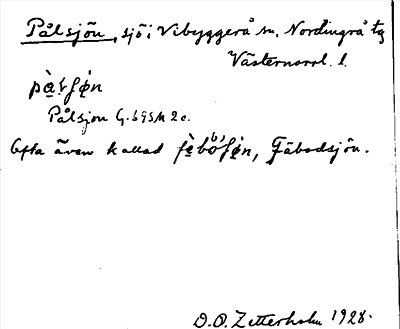 Pålsjön, sjö i Vibyggerå sn, Nordingrå tg
Västernorrl. l.
Pålsjon G.
Ofta även kallad Fäbodsjön.
D.O. Zetterholm 1928.